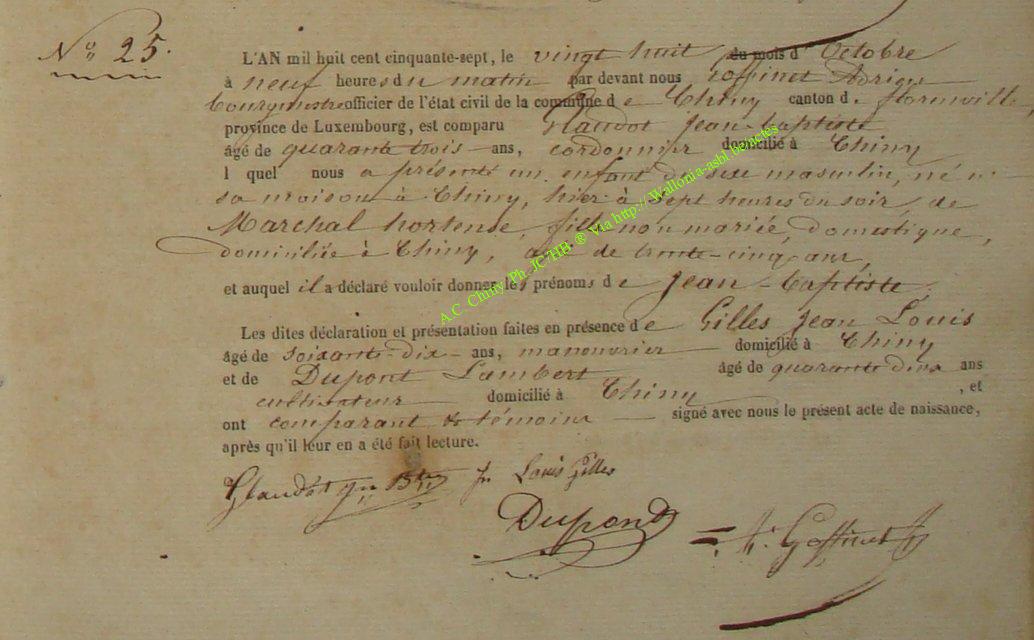 N° 25.
L'AN mil huit cent cinquante-sept, le vingt huit du mois d' Octobre
à neuf heures du matin par devant nous Goffinet Adrien
bourgmestre officier de l'état civil de la commune de Chiny canton de florenville
province de Luxembourg, est comparu Glaudot Jean-baptiste
âgé de quarante trois ans, cordonnier domicilié à Chiny
lequel nous a présenté un enfant de sexe masculin, né
sa maison à Chiny, hier à sept heures du soir, de
Marchal hortense, fille non mariée, domestique,
domiciliée à Chiny, agée de trente-cinq ans,
et auquel il a déclaré vouloir donner les prénoms de Jean-baptiste,
Les dites déclaration et présentation faites en présence de Gilles Jean Louis
âgé de soixante-dix ans, manouvrier domicilié à Chiny
et de Dupont Lambert âgé de quarante deux ans
cultivateur domicilié à Chiny, et
ont comparant & témoins signé avec nous le présent acte de naissance,
après qu'il leur en a été fait lecture.
Glaudot Jn Bte Jn Louis Gilles
Dupond
A. Goffinet
A.C Chiny Ph JC7HH ® Via http://Wallonia-asbl.be/actes